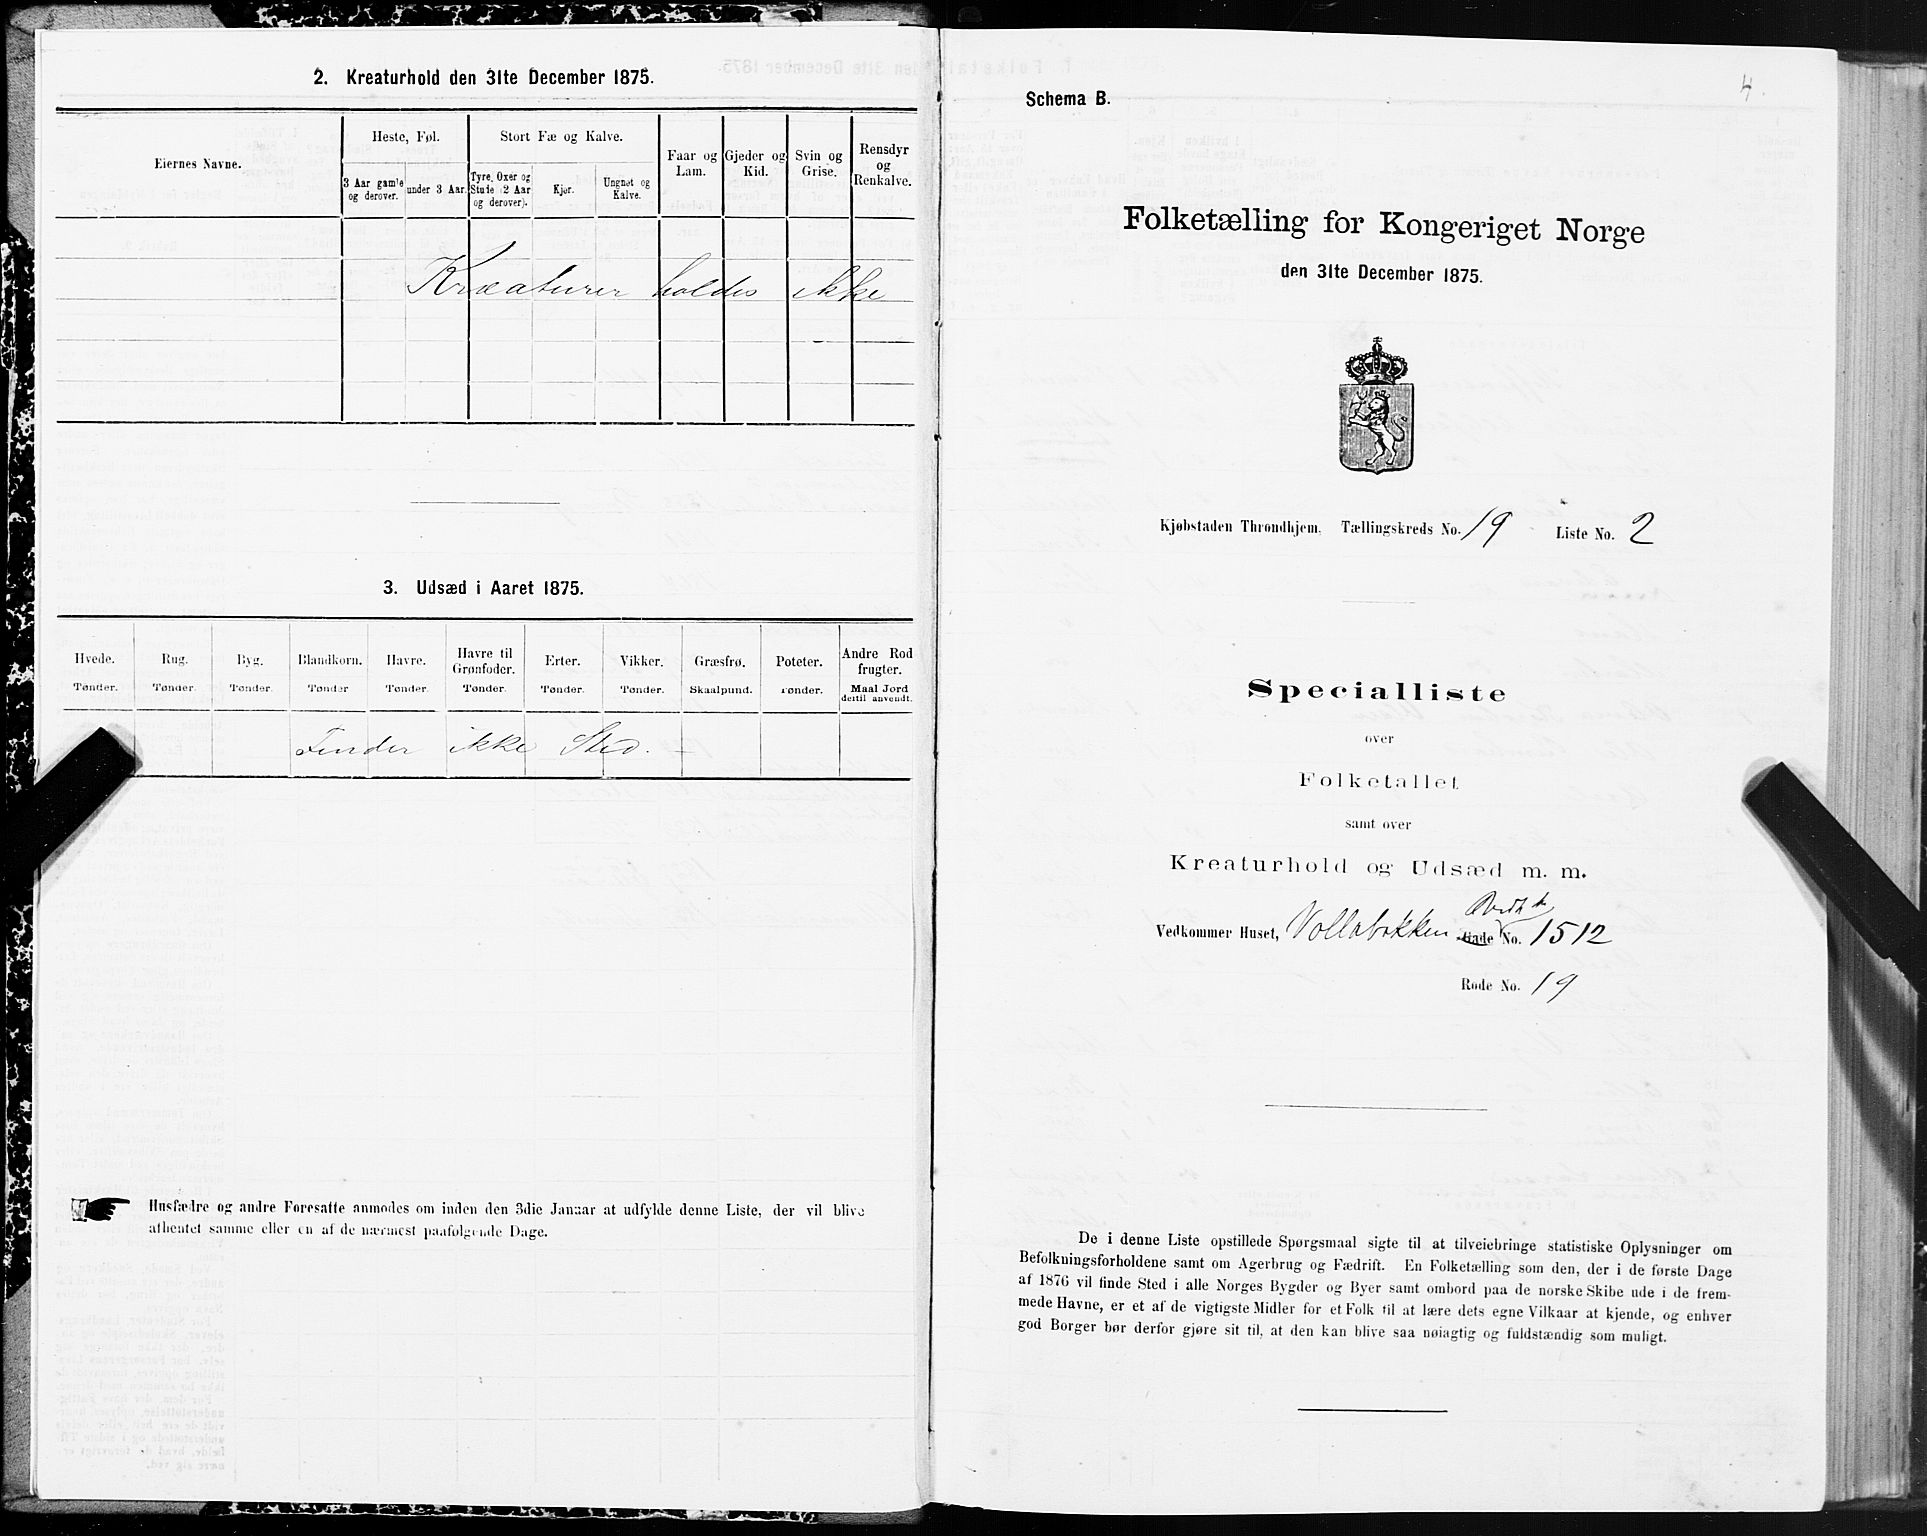 2. Kreaturhold den 31te December 1875.
Eiernes Navne.
Heste, Føl.
Stort Fæ og Kalve.
Faar og Lam.
Gjeder og Kid.
Svin og Grise.
Rensdyr og Renkalve.
3 Aar gamle og derover.
under 3 Aar.
Tyre, Oxer og Stude (2 Aar og derover).
Kjør.
Ungnøt og Kalve.
Kreaturer holdes ikke
3. Udsæd i Aaret 1875.
Hvede. Rug. Byg. Blandkorn. Havre. Havre til Grønfoder. Erter. Vikker. Græsfrø. Poteter. Andre Rodfrugter.
Tønder. Tønder. Tønder. Tønder Tønder. Tønder. Tønder. Tønder. Skaalpund. Tønder. Maal Jord dertil anvendt.
Finder ikke Sted. —
Husfædre og andre Foresatte anmodes om inden den 3die Januar at udfylde denne Liste, der vil blive
afhentet samme eller en af de nærmest paafølgende Dage.
4.
Schema B.
Folketælling for Kongeriget Norge
den 31te December 1875.
Kjøbstaden Throndhjem. Tællingskreds No. 19 Liste No. 2
Specialliste
over
Folketallet
samt over
Kreaturhold og Udsæd m. m.
Vedkommer Huset, Vollabakken Gade No. 1512
Rode No. 19
De i denne Liste opstillede Spørgsmaal sigte til at tilveiebringe statistiske Oplysninger om
Befolkningsforholdene samt om Agerbrug og Fædrift. En Folketælling som den, der i de første Dage
af 1876 vil finde Sted i alle Norges Bygder og Byer samt ombord paa de norske Skibe ude i de frem-
mede Havne, er et af de vigtigste Midler for et Folk til at lære dets egne Vilkaar at kjende, og enhver
god Borger bør derfor gjøre sit til, at den kan blive saa nøiagtig og fuldstændig som muligt.